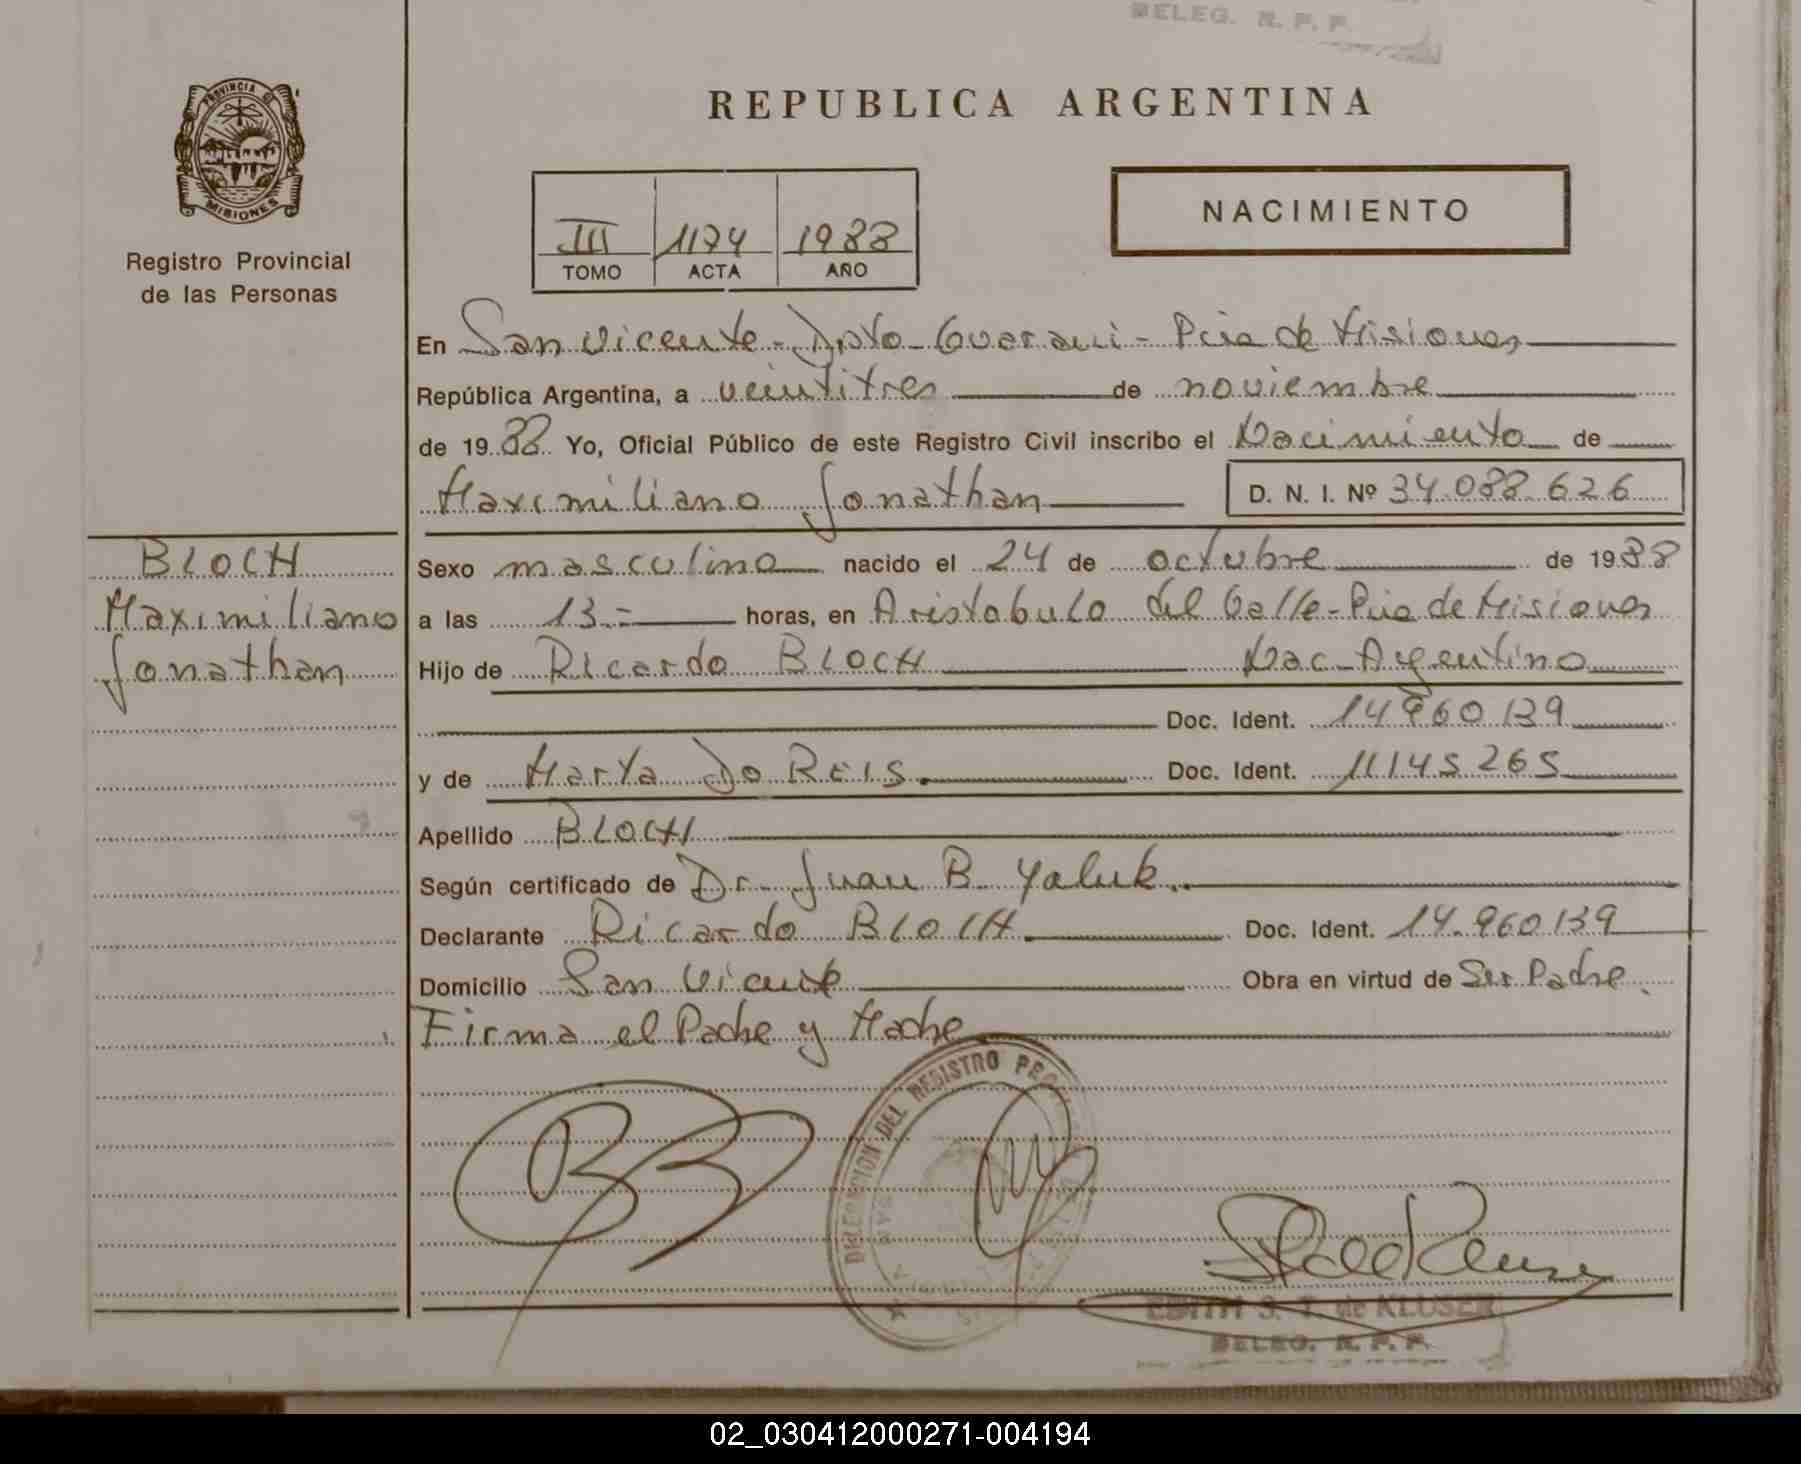 DELEG. R. P. P.
PROVINCIA DE
MISIONES
Registro Provincial
de las Personas
REPUBLICA ARGENTINA
III 1174 1988
TOMO ACTA AÑO
NACIMIENTO
En San Vicente - Dpto - Guarani - Pcia de Misiones
República Argentina, a veintitres de noviembre
de 1988 Yo, Oficial Público de este Registro Civil inscribo el Nacimiento de
Maximiliano Jonathan D. N. I. Nº 34.088.626
BLOCH
Maximiliano
Jonathan
Sexo masculino nacido el 24 de octubre de 1988
a las 13.= horas, en Aristobulo del Valle - Pcia de Misiones
Hijo de Ricardo BLOCH Nac- Argentino
Doc. Ident. 14960139
y de Marta Do REIS. Doc. Ident. 11145265
Apellido BLOCH
Según certificado de Dr. Juan B. Yaluk.
Declarante Ricardo BLOCH Doc. Ident. 14.960139
Domicilio San Vicente Obra en virtud de Ser Padre.
Firma el Padre y Madre
DELEGACION DEL REGISTRO
EDITH S. T. de KLUSER
DELEG. R. P. P.
02_030412000271-004194